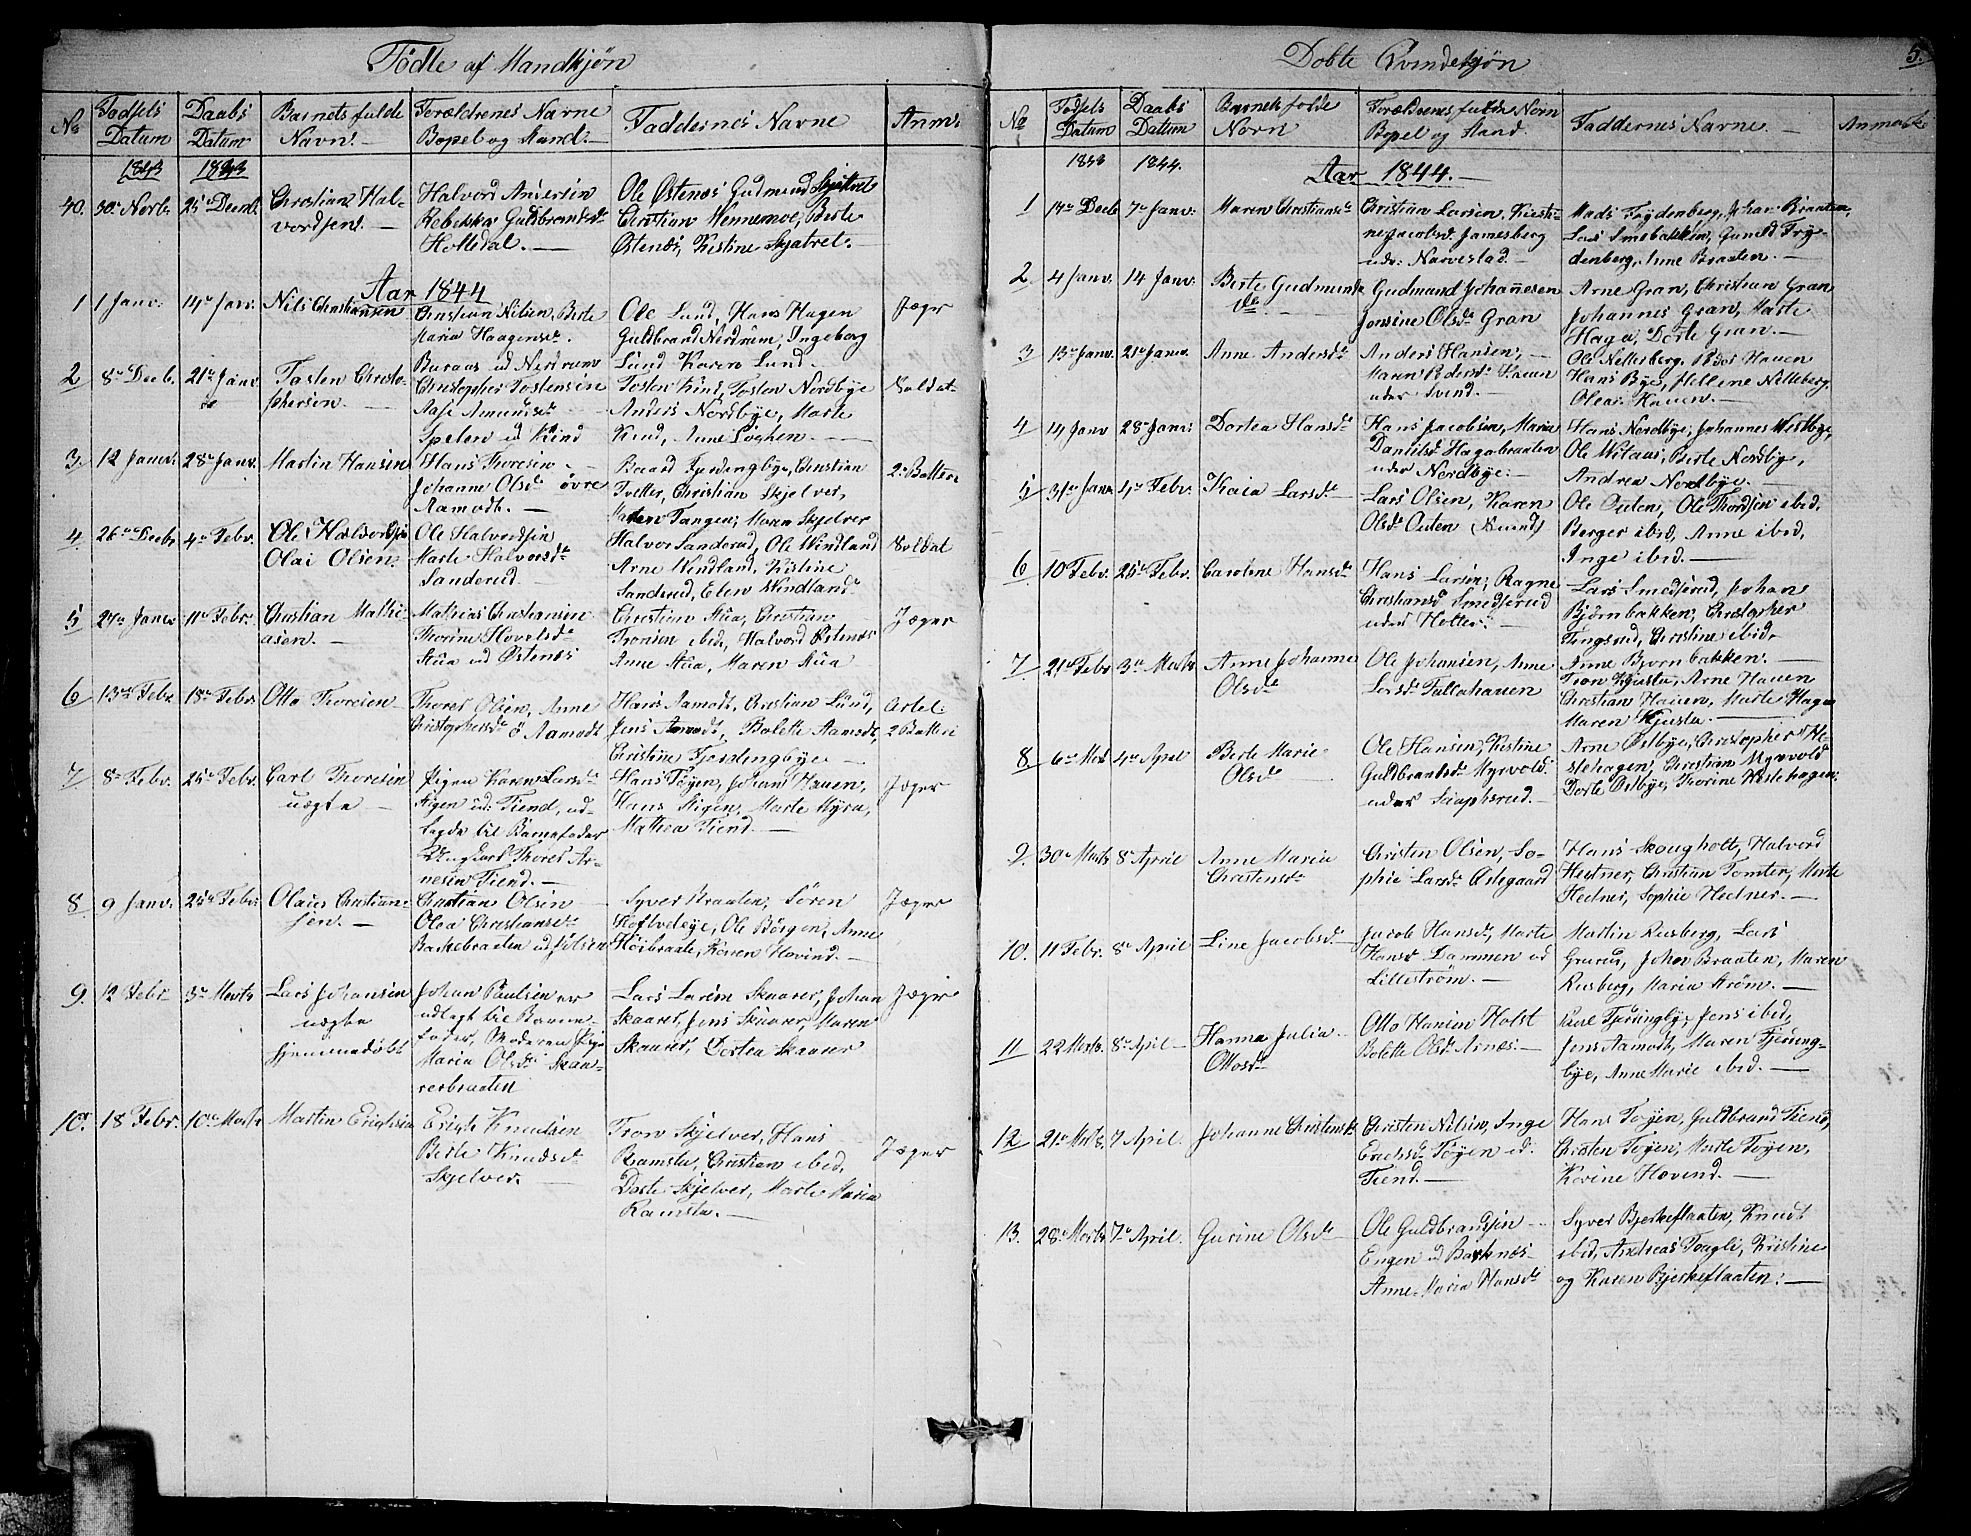 Fødte af Mandkjøn
No
Fødsels Datum
Daabs Datum
Barnets fulde Navn
Forældrenes Navne Bopel og Stand
Faddernes Navne
Anm:
1843 1843
40. 30. Novbr. 25 Decmb. Christian Halvordsen.
Halvord Andersen
Rebekka Guldbrandsd.
Holtedal.
Ole Østenæs, Gudmund Skjatvet
Christian Nennemoe, Berte
Østenæs, Kistine Skjatvet.
Aar 1844
1 1 Janv: 14 Janv. Nils Christiansen
Christian Nilsen, Berte
Maria Haagensd.
Baraas ud Nerdrum
Ole Lund, Hans Hagen
Guldbrand Nerdrum, Ingeborg
Lund Karen Lund.
Jæger
2 8 Decb. 21 Janv. Tosten Christophersen.
Christopher Tostensen
Aase Amundsd.
Spelen ud Kind
Tosten Kind, Tosten Nordbye
Anders Nordbye, Marte
Kind, Anne Løshen.
Soldat
3. 12 Janv. 28 Janv. Martin Hansen
Hans Thoresen
Johanne Olsd. øvre
Aamodt.
Baard Fjerdengbye, Christian
Tvetter, Christian Skjelver,
Maren Tangen, Maren Skjelver
2. Batteri
4. 26 Decbr. 4 Febr. Ole Halvordsen
Olai Olsen.
Ole Halvordsen
Marte Halvorsd.
Sanderud.
Halvor Sanderud, Ole Windland
Arne Windland, Kistine
Sanderud, Elen Windland.
Soldat
5 27 Janv. 11 Febr. Christian Mathiasen.
Mathias Christiansen
Thorine Hovelsd.
Stua ud Østenæs
Christian Stua, Christian
Tronsen ibid, Halvord Østenæs
Anne Stua, Maren Stua
Jæger
6 13 Febr. 18 Febr. Otto Thoresen
Thores Olsen, Anne
Christophersd. ø Aamodt
Hans Aamodt, Christian Lund,
Jens Aamodt, Bolette Aamodt,
Christine Fjerdengbye
Artel: 2 Batteri
7 8 Febr. 25 Febr. Carl Thoresen
uægte
Pigen Karen Larsd.
Stigen ud: Tiend, udlagde
til Barnefader
Ungkarl Thores Arnesen
Tiend.
Hans Tøyen, Johans Hauen,
Hans Stigen, Marte Myra,
Mathea Tiend.
Jæger
8 9 Janv. 25 Febr. Olaus Christiansen.
Christian Olsen
Olea Christiansd.
Bakkebraaten ud Jølsen
Syver Braaten, Søren
Koflvdeye, Ole Børgen, Anne
Høibraate, Karen Hovind.
Jæger
9. 12 Febr. 3 Marts Lars Johansen
uægte
hjemmedøbt
Johan Paulsen er
udlagt til Barnefader,
Moderen Pige
Maria Olsd. Skaarerbraaten
Lars Larsen Skaarer, Johan
Skaarer, Jens Skaarer, Maren
Skaarer, Dortea Skaarer
Jæger
10. 18 Febr. 10 Marts Martin Erichsen
Erich Knudsen
Berte Knudsd.
Skjelver.
Tron Skjelver, Hans
Ramsta, Christian ibid,
Dorte Skjelver, Marte Maria
Ramsta.
Jæger
Døbte Qvindekjøn
5.
No
Fødsels Datum
Daabs Datum
Barnets fulde Navn
Forældrenes fulde Navn Bopel og Stand
Faddernes Navne
Anmærk.
1843 1844.
Aar 1844.
1 14 Decb. 7 Janv: Maren Christiansd.
Christian Larsen, Kiestine
Jacobsd. Jamesberg
under Narvestad.
Mads Frydenberg, Johan Braaten,
Lars Smebakken, Gunild Frydenberg,
Anne Braaten.
2 4 Janv. 14 Janv. Berte Gudmundsd.
Gudmund Johannesen
Jonsine Olsd. Gran
Arne Gran, Christian Gran
Johannes Gran, Marte
Haga, Dorte Gran.
3 13 Janv. 21 Janv. Anne Andersd.
Anders Hansen,
Maren Pedersd. Hauen
under Svend.
Ole Nelleberg, Peder Hauen
Hans Bye, Hellene Nelleberg
Olea Hauen.
4 14 Janv. 28 Janv: Dortea Hansd.
Hans Jacobsen, Maria
Danielsd. Hagabraaten
under Nordbye.
Hans Nordbye, Johannes Westbye,
Ole Wilaus, Berte Nordbye,
Andrea Nordbye.
5 31 Janv. 4 Febr. Kaia Larsd.
Lars Olsen, Karen
Olsd. Osten
Ole Osten, Ole Thordsen ibid,
Berger ibid, Anne ibid,
Inge ibid.
6 10 Febr. 25 Febr. Caroline Hansd.
Hans Larsen, Ragne
Christiansd. Smedserud
under Holter.
Lars Smedserud, Johan
Bjørnbakken, Christopher
Tingsrud, Christine ibid,
Anne Bjørnbakken.
7 21 Febr. 3 Marts Anne Johanne
Olsd.
Ole Johansen, Anne
Larsd. Tullahauen
Tron Kjusta, Arne Hauen
Christian Hauen, Marte Hagen
Maren Kjusta.
8 6 Marts 4 April Berte Marie
Olsd.
Ole Hansen, Kistine
Guldbrandsd. Myrvold.
under Saaphsrud.
Arne Østbye, Christopher Westlehagen,
Christian Myrvold
Dorte Østbye, Thorine Westlehagen
9. 30 Marts 8 April Anne Maria
Christensd.
Christen Olsen, Sophie
Larsd. Østegaard
Hans Skougholt, Halvord
Hedner, Christian Tomter, Marte
Hedner, Sophie Hedner.
10. 11 Febr. 8 April Line Jacobsd.
Jacob Hansd., Marte
Hansd. Dammen ud
Lillestrøm.
Martin Rusberg, Lars
Grurus, Johan Braaten, Maren
Rusberg, Maria Strøm.
11 22 Marts. 8 April Hanna Julia
Ottosd.
Otto Hansen Holst
Bolette Olsd. Arnæs.
Paul Fjerringbye, Jens ibid,
Jens Aamodt, Maren Fjerringbye,
Anne Marie ibid.
12 21 Marts. 7 April. Johanne Christensd.
Christen Nilsen, Inge
Erichsd. Tøyen ud.
Tiend.
Hans Tøyen, Guldbrand Tiend,
Christen Tøyen, Marte Tøyen,
Karine Hovind.
13. 28 Marts 7 April. Gurine Olsd.
Ole Guldbrandsen
Engen ud Bærknæs
Anne Maria Hansd.
Syver Bjerkeflaaten, Knudt
ibid, Andreas Toagli, Kristine
og Karen Bjerkeflaaten.